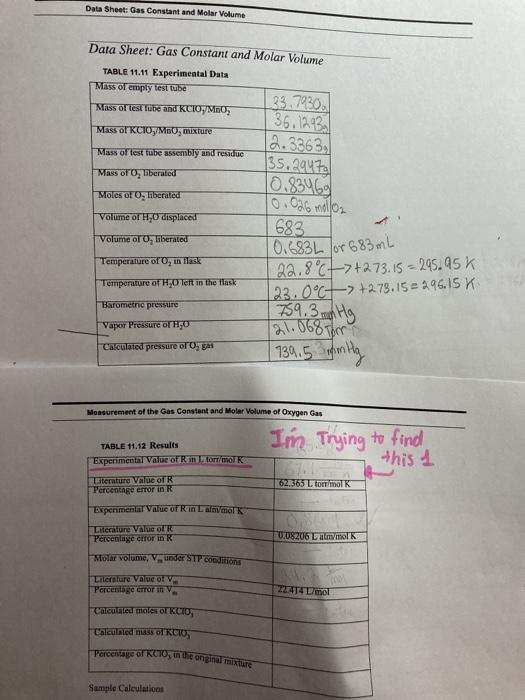 Data Sheet: Gas Constant and Molar Volume
Data Sheet: Gas Constant and Molar Volume
TABLE 11.11 Experimental Data
Mass of empty test tube 33.7930g
Mass of test tube and KClO₃/MnO₂ 36.1293g
Mass of KClO₃/MnO₂ mixture 2.3363g
Mass of test tube assembly and residue 35.2947g
Mass of O₂ liberated 0.8346g
Moles of O₂ liberated 0.026 mol O₂
Volume of H₂O displaced 683
Volume of O₂ liberated 0.683L or 683mL
Temperature of O₂ in flask 22.8°C → +273.15 = 295.95 K
Temperature of H₂O left in the flask 23.0°C → +273.15 = 296.15 K
Barometric pressure 759.3 mmHg
Vapor Pressure of H₂O 21.068 Torr
Calculated pressure of O₂ gas 739.5 mmHg
Measurement of the Gas Constant and Molar Volume of Oxygen Gas
TABLE 11.12 Results
Im Trying to find this 1
Experimental Value of R in L torr/mol K
Literature Value of R 62.365 L torr/mol K
Percentage error in R
Experimental Value of R in L atm/mol K
Literature Value of R 0.08206 L atm/mol K
Percentage error in R
Molar volume, Vₘ under STP conditions
Literature Value of Vₘ 22.414 L/mol
Percentage error in Vₘ
Calculated moles of KClO₃
Calculated mass of KClO₃
Percentage of KClO₃ in the original mixture
Sample Calculations